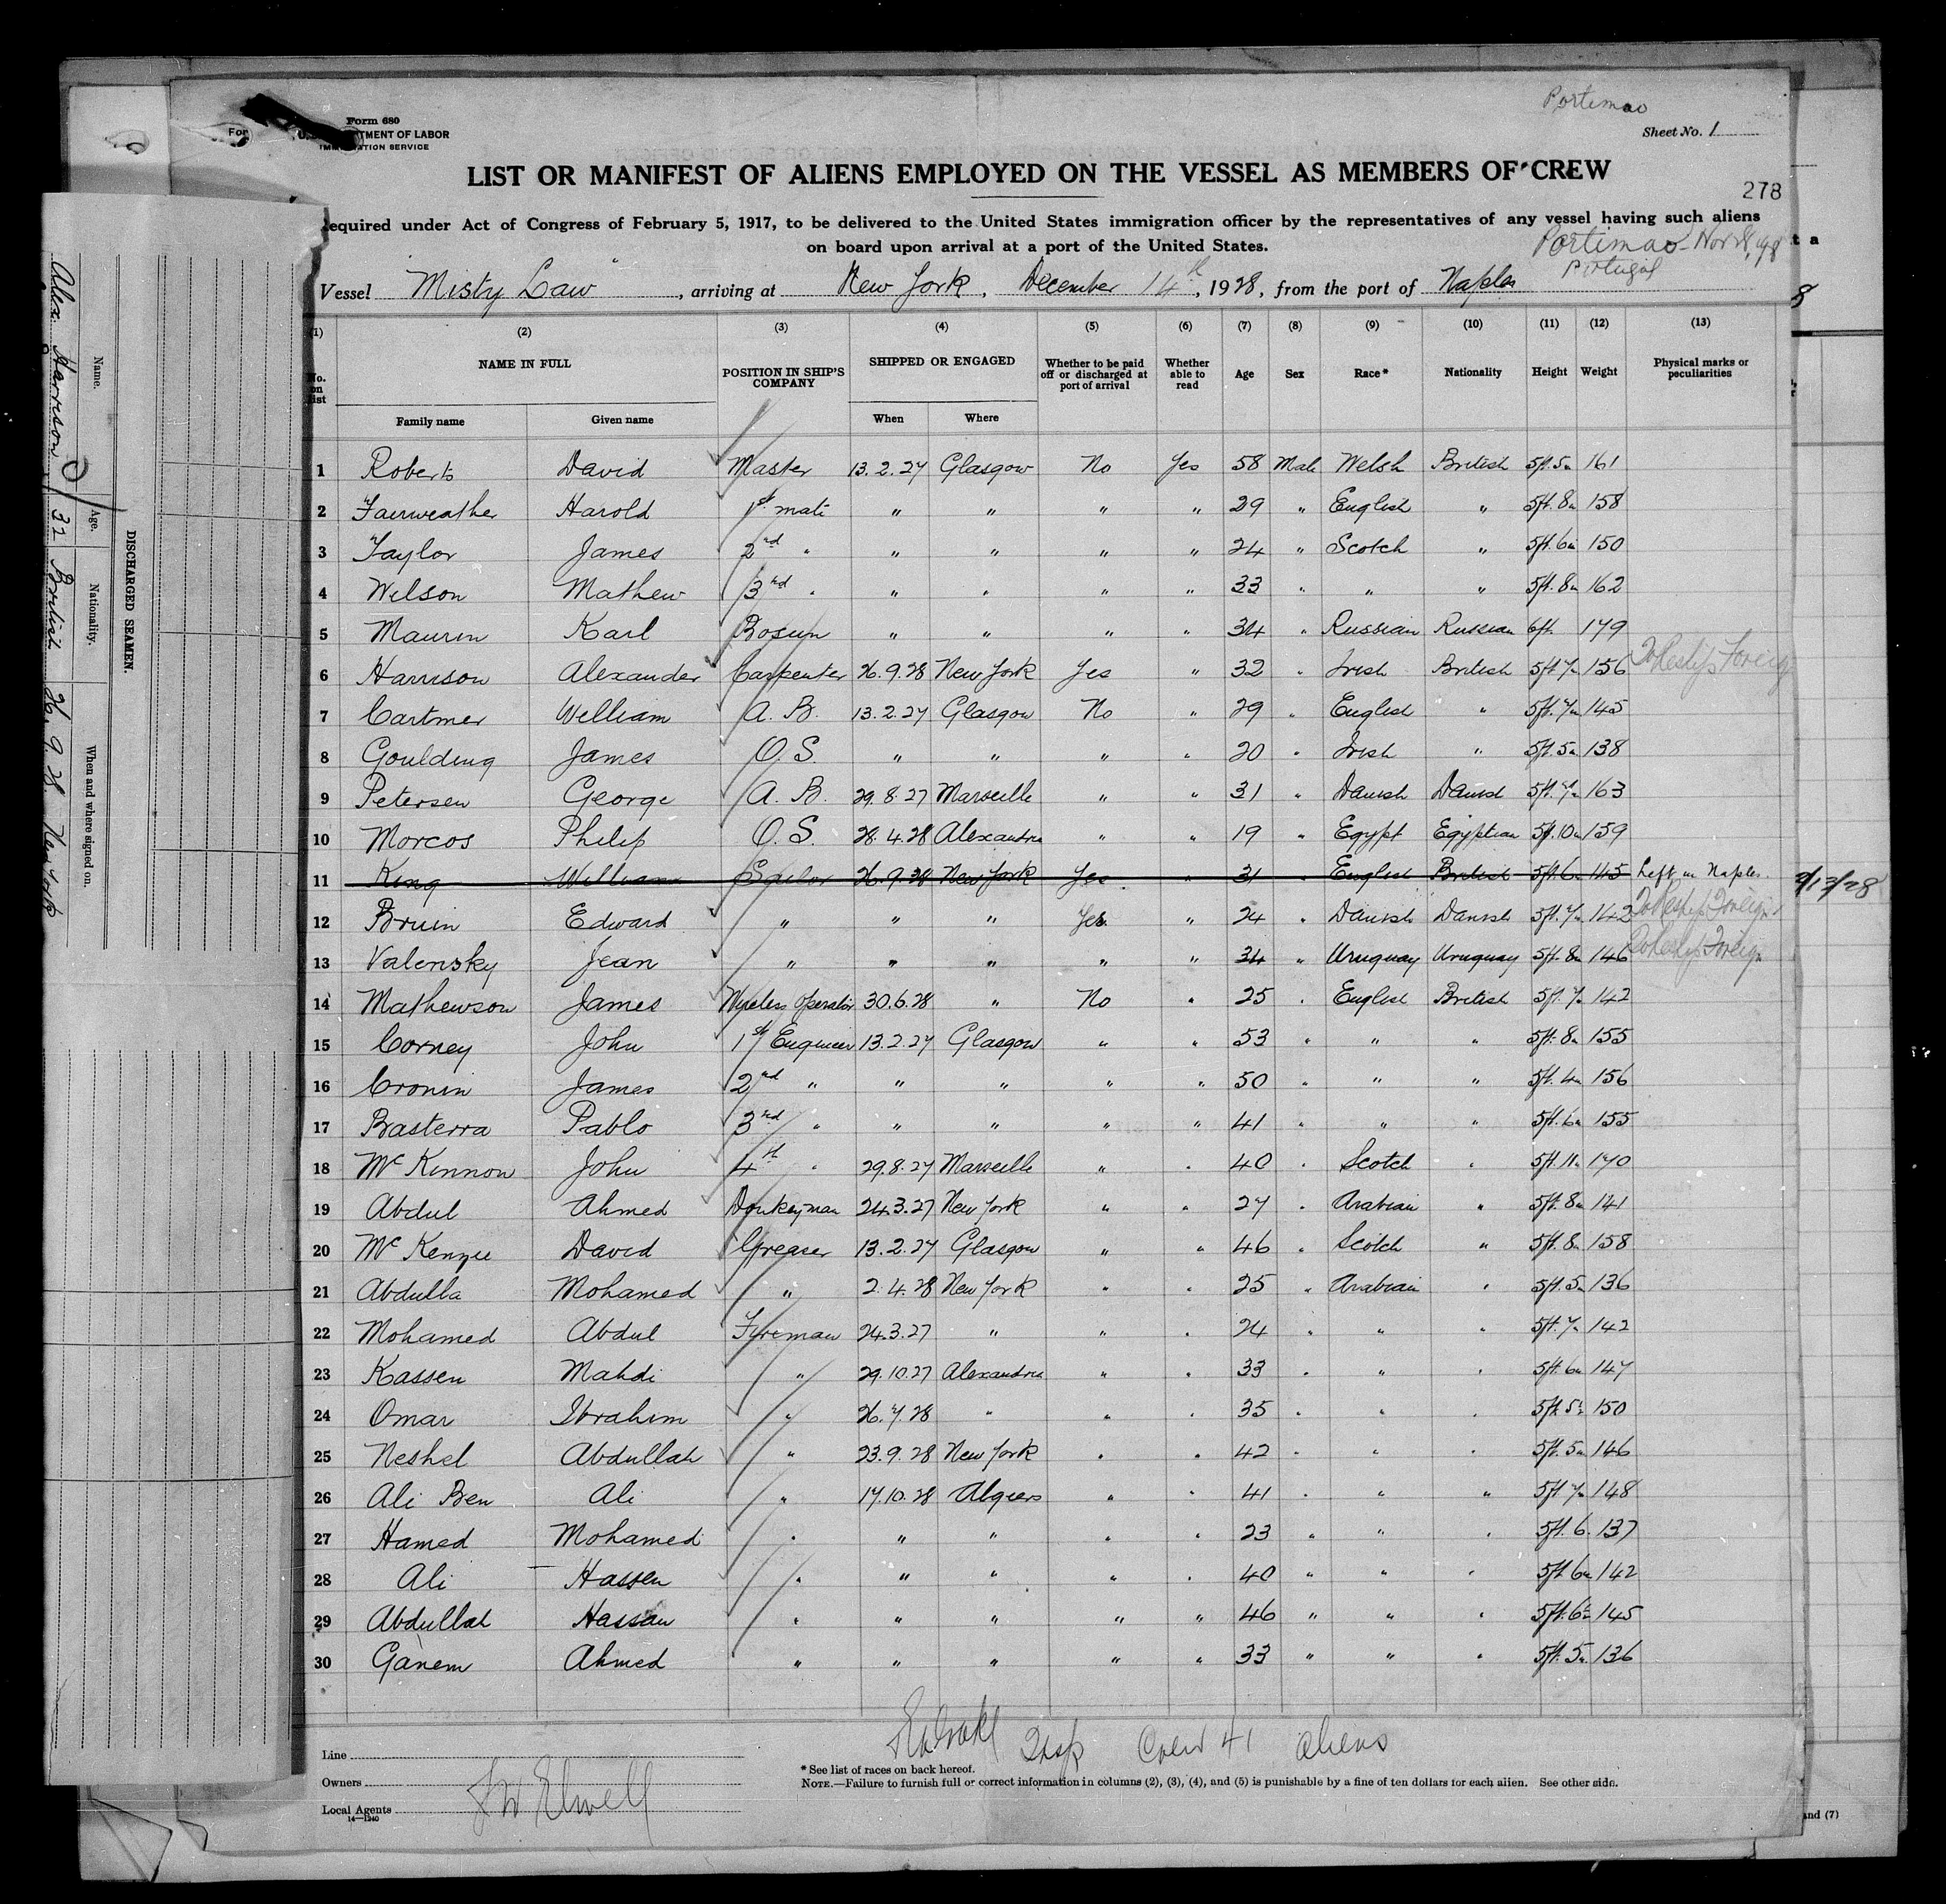 Portimao
Form 680
Sheet No. 1
IMMIGRATION SERVICE
LIST OR MANIFEST OF ALIENS EMPLOYED ON THE VESSEL AS MEMBERS OF CREW
278
Required under Act of Congress of February 5, 1917, to be delivered to the United States immigration officer by the representatives of any vessel having such aliens
on board upon arrival at a port of the United States.
Portimao Nov 28, 28
Portugal
Vessel "Misty Law", arriving at New York, December 14th, 1928, from the port of Naples
(1) (2) (3) (4) (5) (6) (7) (8) (9) (10) (11) (12) (13)
No. on list NAME IN FULL POSITION IN SHIP'S COMPANY SHIPPED OR ENGAGED Whether to be paid off or discharged at port of arrival Whether able to read Age Sex Race* Nationality Height Weight Physical marks or peculiarities
Family name Given name When Where
1 Roberts David Master 13.2.27 Glasgow No Yes 58 Male Welsh British 5ft.5in 161
2 Fairweather Harold 1st mate " " " " 29 " English " 5ft.8in 158
3 Taylor James 2nd " " " " " 24 " Scotch " 5ft.6in 150
4 Wilson Mathew 3rd " " " " " 33 " " " 5ft.8in 162
5 Maurin Karl Bosun " " " " 34 " Russian Russian 6ft. 179
6 Harrison Alexander Carpenter 26.9.28 New York Yes " 32 " Irish British 5ft 7in 156 To Reship Foreign
7 Cartmer William A. B. 13.2.27 Glasgow No " 29 " English " 5ft.7in 145
8 Goulding James O. S. " " " " 20 " Irish " 5ft.5in 138
9 Petersen George A. B. 29.8.27 Marseille " " 31 " Danish Danish 5ft.7in 163
10 Morcos Philip O. S. 28.4.28 Alexandria " " 19 " Egypt Egyptian 5ft.10in 159
11 King William Sailor 26.9.28 New York Yes " 31 " English British 5ft.6in 145 Left in Naples.
12 Bruin Edward " " " Yes " 24 " Danish Danish 5ft.7in 142 To Reship Foreign
13 Valensky Jean " " " " " 34 " Uruguay Uruguay 5ft.8in 146 To Reship Foreign
14 Mathewson James Wireless Operator 30.6.28 " No " 25 " English British 5ft.7in 142
15 Corney John 1st Engineer 13.2.27 Glasgow " " 53 " " " 5ft.8in 155
16 Cronin James 2nd " " " " " 50 " " " 5ft.4in 156
17 Basterra Pablo 3rd " " " " " 41 " " " 5ft.6in 155
18 McKinnon John 4th " 29.8.27 Marseille " " 40 " Scotch " 5ft.11in 170
19 Abdul Ahmed Donkeyman 24.3.27 New York " " 27 " Arabian " 5ft.8in 141
20 McKenzie David Greaser 13.2.27 Glasgow " " 46 " Scotch " 5ft.8in 158
21 Abdulla Mohamed " 2.4.28 New York " " 25 " Arabian " 5ft.5in 136
22 Mohamed Abdul Fireman 24.3.27 " " " 24 " " " 5ft.7in 142
23 Kassen Mahdi " 29.10.27 Alexandria " " 33 " " " 5ft.6in 147
24 Omar Ibrahim " 26.7.28 " " " 35 " " " 5ft 5in 150
25 Neshel Abdullah " 23.9.28 New York " " 42 " " " 5ft.5in 146
26 Ali Ben Ali " 17.10.28 Algiers " " 41 " " " 5ft 7in 148
27 Hamed Mohamed " " " " " 23 " " " 5ft.6. 137
28 Ali Hassen " " " " " 40 " " " 5ft 6in 142
29 Abdullah Hassan " " " " " 46 " " " 5ft.6in 145
30 Ganem Ahmed " " " " " 33 " " " 5ft.5in 136
Insp Crew 41 aliens
Line
Owners
Local Agents
14—1240
J W Elwell
* See list of races on back hereof.
NOTE.—Failure to furnish full or correct information in columns (2), (3), (4), and (5) is punishable by a fine of ten dollars for each alien. See other side.
and (7)
DISCHARGED SEAMEN.
Name. Age. Nationality. When and where signed on.
Alex. Harrison 32 British 26.9.28. New York